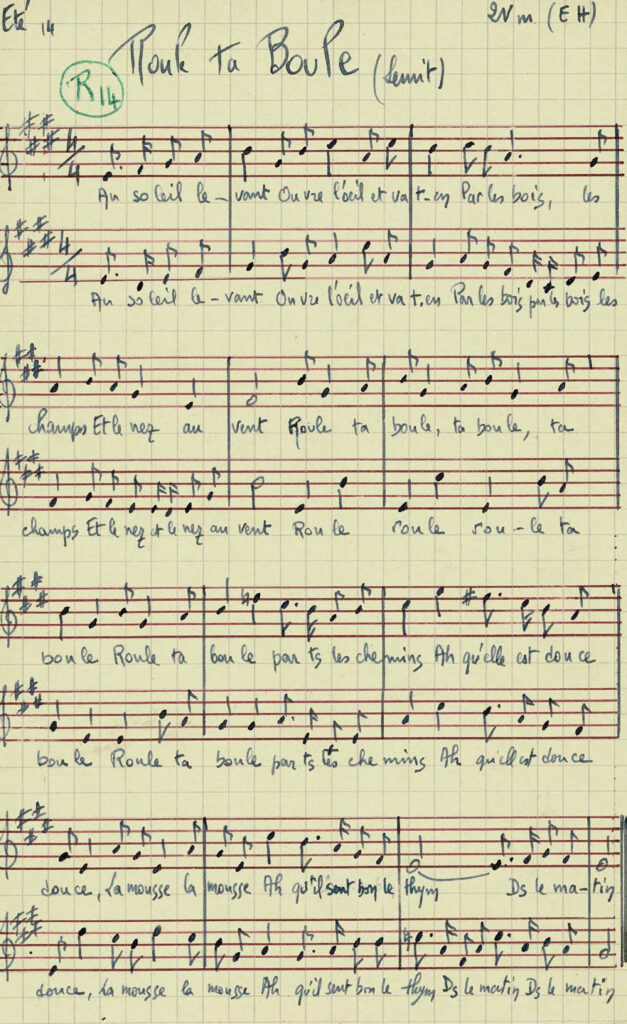 Eté 14
2V m (E H)
Roule ta Boule
R14
4/4
Au soleil le-vant Ouvre l'œil et va t-en Par les bois, les
4/4
Au soleil le-vant Ouvre l'œil et va t-en Par les bois par les bois les
champs Et le nez au vent Roule ta boule, ta boule, ta
champs Et le nez et le nez au vent Roule roule rou-le ta
boule Roule ta boule par ts les chemins Ah qu'elle est douce
boule Roule ta boule par ts les chemins Ah qu'elle est douce
douce, La mousse la mousse Ah qu'il sent bon le thym Ds le ma-tin
douce, La mousse la mousse Ah qu'il sent bon le thym Ds le matin Ds le matin